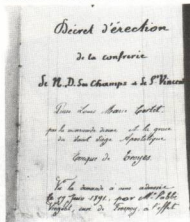 Décret d'érection
de la confrérie
de N. D. des Champs & de St Vincent
Pierre Louis Marie Cortet,
par la miséricorde divine et la grâce
du Saint Siège Apostolique
Evêque de Troyes
Vu la demande à nous adressée
le 17 Juin 1891, par Mr l'abbé
curé de à l'effet